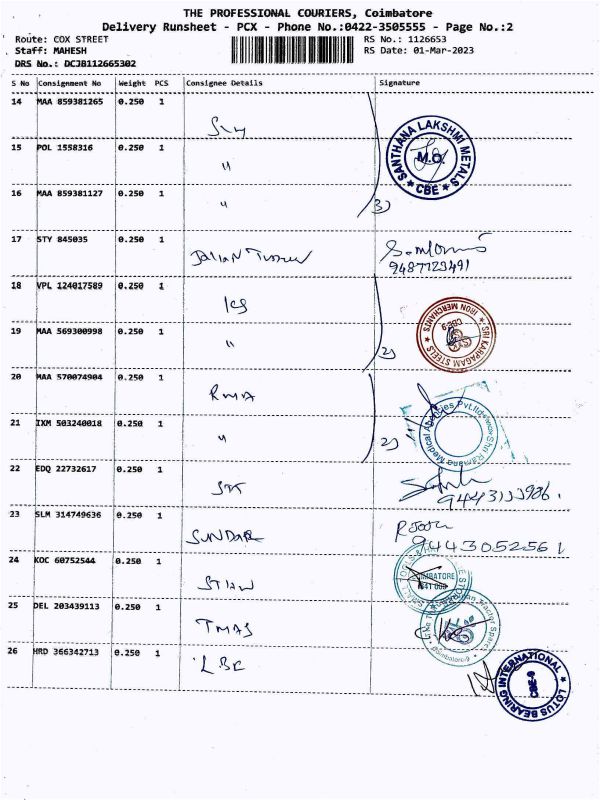 THE PROFESSIONAL COURIERS, Coimbatore
Delivery Runsheet - PCX - Phone No.:0422-3505555 - Page No.:2
Route: COX STREET
RS No.: 1126653
Staff: MAHESH
RS Date: 01-Mar-2023
DRS No.: DCJB112665302
S No Consignment No Weight PCS Consignee Details Signature
14 MAA 859381265 0.250 1
SANTHANA LAKSHMI METALS M.O. CBE
15 POL 1558316 0.250 1 "
16 MAA 859381127 0.250 1 " 3)
17 STY 845035 0.250 1
9487123491
18 VPL 124017589 0.250 1
SRI KARPAGAM STEELS IRON MERCHANTS CBE-9
19 MAA 569300998 0.250 1 " 2)
20 MAA 570074904 0.250 1 RMA
Shri Ramana Medical Agencies Pvt.Ltd
21 IXM 503240018 0.250 1 " 2)
22 EDQ 22732617 0.250 1
23 SLM 314749636 0.250 1 SUNDAR
9443052561
24 KOC 60752544 0.250 1
25 DEL 203439113 0.250 1 TMAS
26 HRD 366342713 0.250 1 LBE
LOTUS BEARING INTERNATIONAL CBE-9